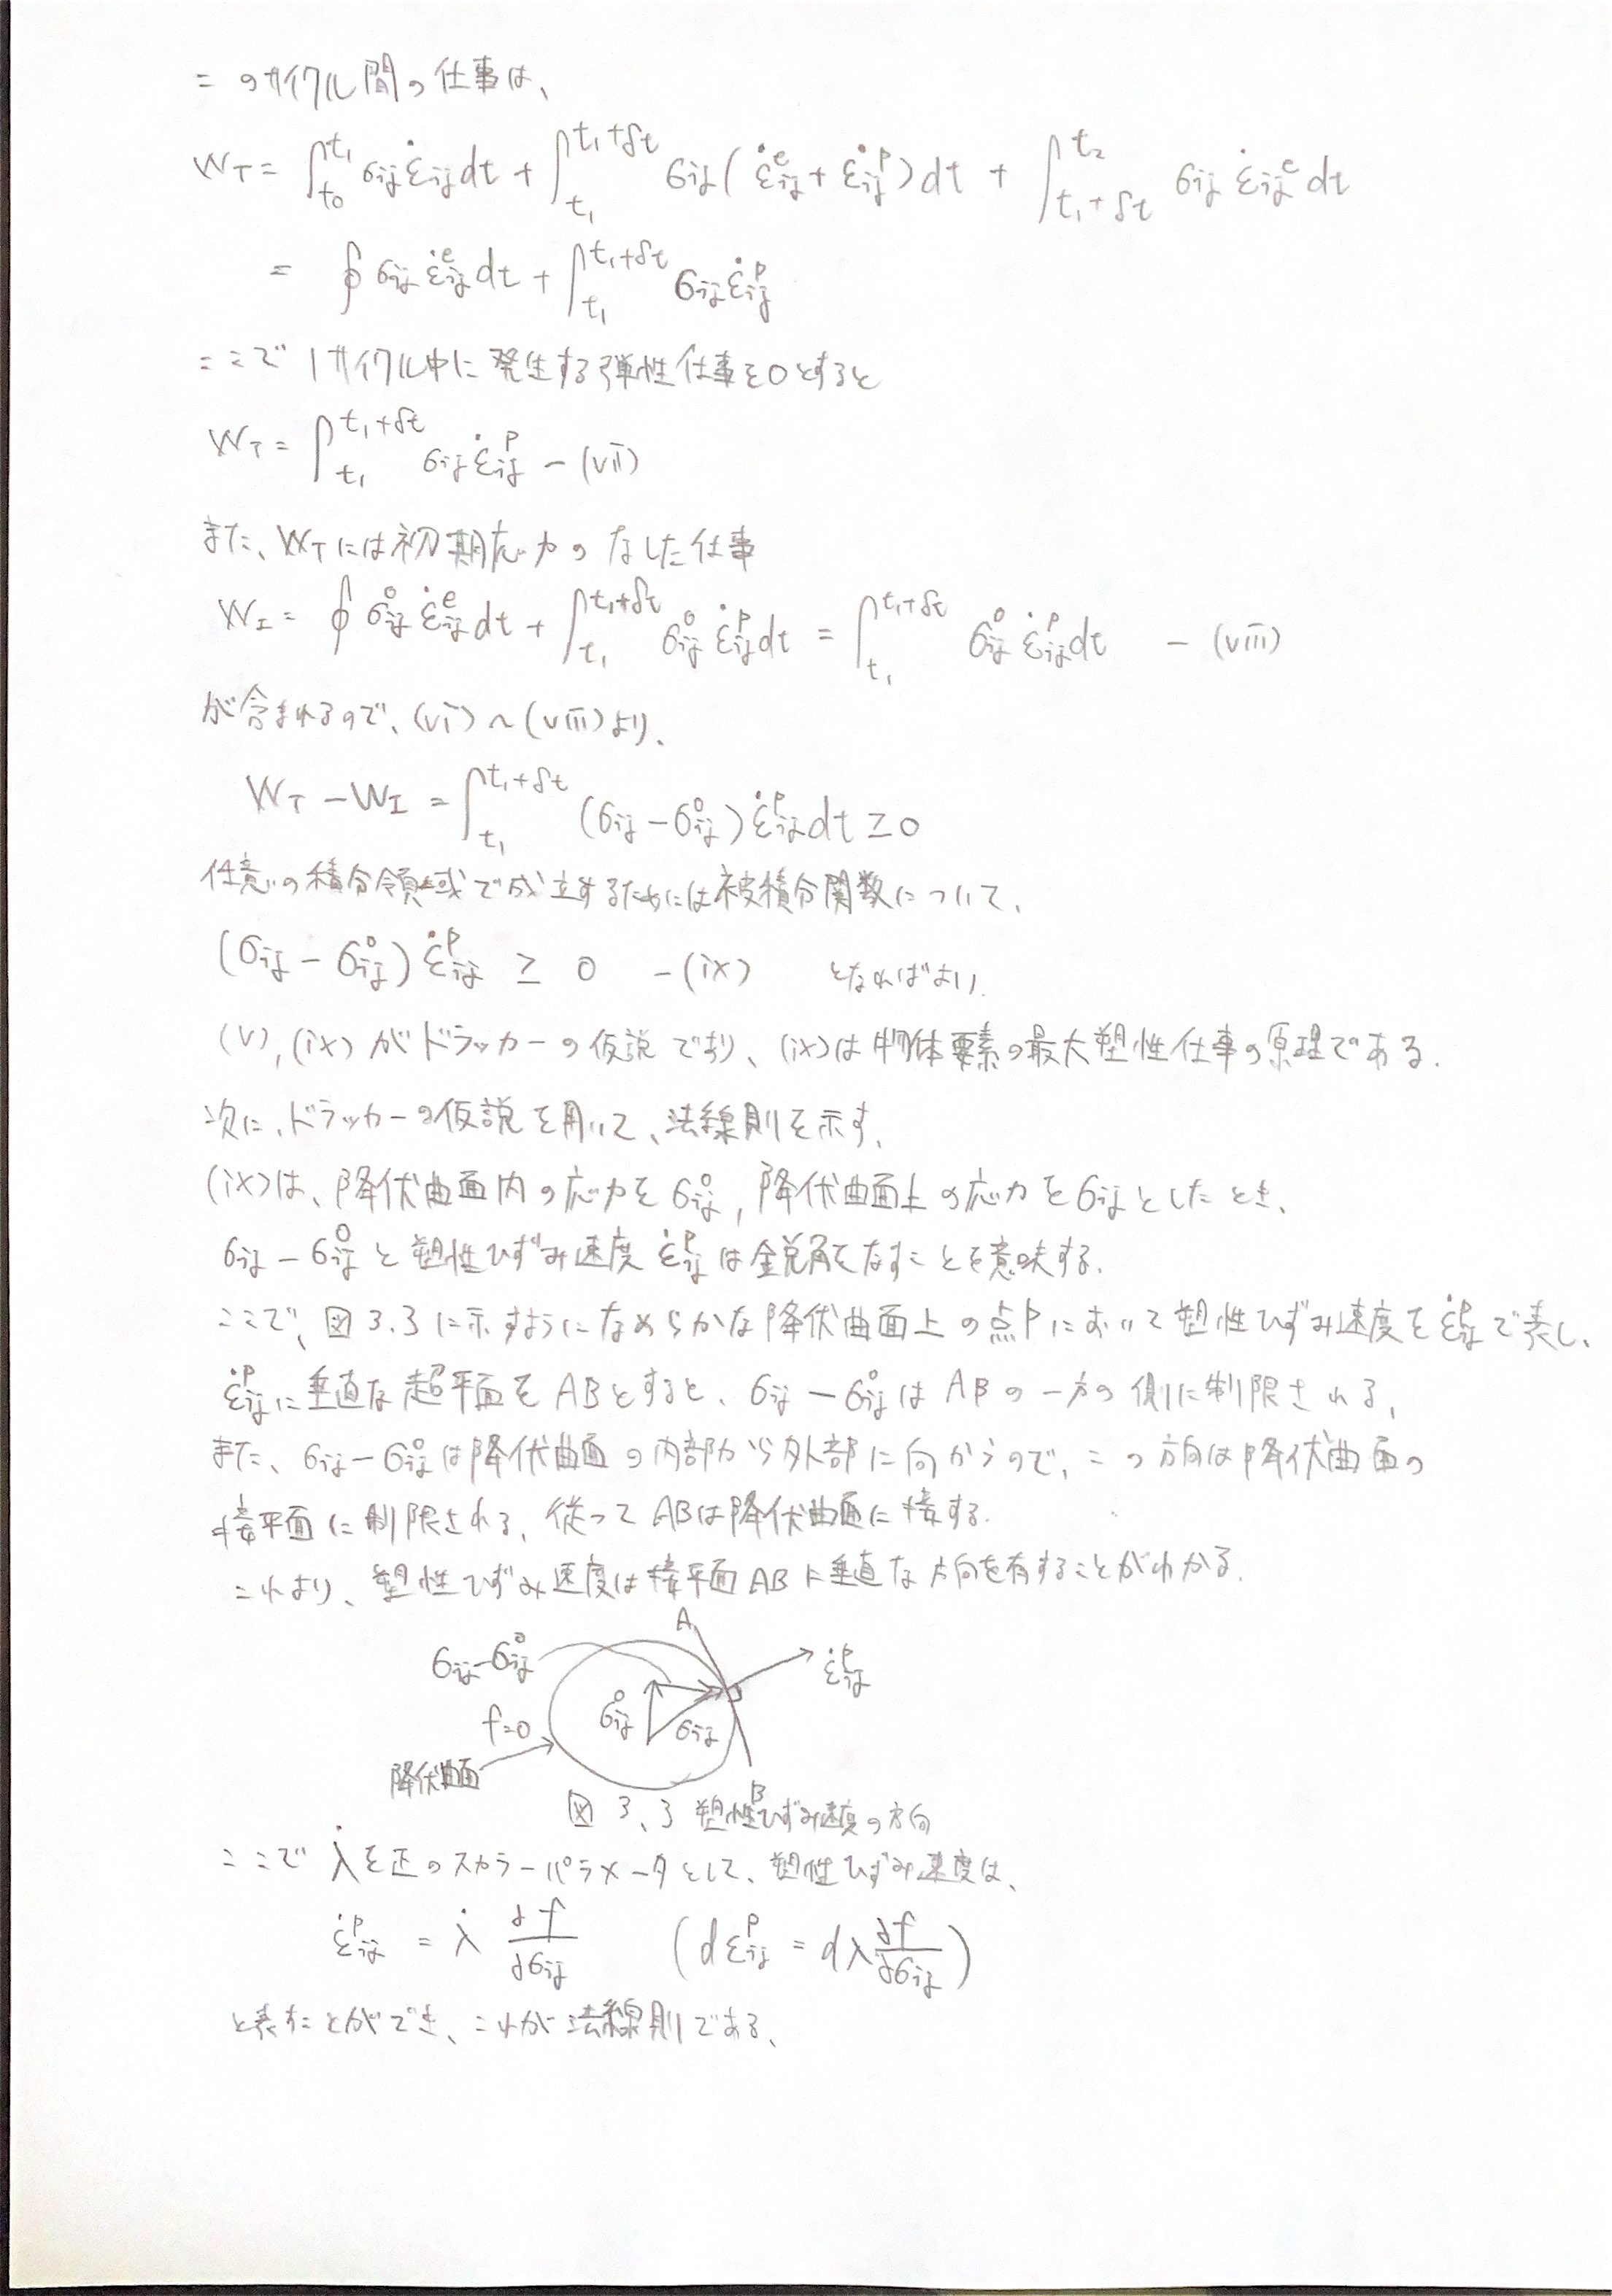 このサイクル間の仕事は、
W_T = ∫_{t_0}^{t_1} σ_{ij} ε̇_{ij} dt + ∫_{t_1}^{t_1+δt} σ_{ij} (ε̇^e_{ij} + ε̇^p_{ij}) dt + ∫_{t_1+δt}^{t_2} σ_{ij} ε̇^e_{ij} dt
= ∮ σ_{ij} ε̇^e_{ij} dt + ∫_{t_1}^{t_1+δt} σ_{ij} ε̇^p_{ij}
ここで 1サイクル中に発生する弾性仕事を0とすると
W_T = ∫_{t_1}^{t_1+δt} σ_{ij} ε̇^p_{ij} − (vii)
また、W_Tには初期応力のなした仕事
W_I = ∮ σ^0_{ij} ε̇^e_{ij} dt + ∫_{t_1}^{t_1+δt} σ^0_{ij} ε̇^p_{ij} dt = ∫_{t_1}^{t_1+δt} σ^0_{ij} ε̇^p_{ij} dt − (viii)
が含まれるので、(vi)〜(viii)より、
W_T − W_I = ∫_{t_1}^{t_1+δt} (σ_{ij} − σ^0_{ij}) ε̇^p_{ij} dt ≥ 0
任意の積分領域で成立するためには被積分関数について、
(σ_{ij} − σ^0_{ij}) ε̇^p_{ij} ≥ 0 − (ix) となればよい.
(v), (ix) がドラッカーの仮説であり、(ix)は物体要素の最大塑性仕事の原理である.
次に、ドラッカーの仮説を用いて、法線則を示す.
(ix)は、降伏曲面内の応力を σ^0_{ij}, 降伏曲面上の応力を σ_{ij} としたとき、
σ_{ij} − σ^0_{ij} と塑性ひずみ速度 ε̇^p_{ij} は鋭角をなすことを意味する.
ここで、図3.3に示すようになめらかな降伏曲面上の点Pにおいて塑性ひずみ速度を ε̇^p_{ij} で表し、
ε̇^p_{ij} に垂直な超平面をABとすると、σ_{ij} − σ^0_{ij} は ABの一方の側に制限される.
また、σ_{ij} − σ^0_{ij} は降伏曲面の内部から外部に向かうので、この方向は降伏曲面の
接平面に制限される. 従って ABは降伏曲面に接する.
これより、塑性ひずみ速度は接平面ABに垂直な方向を有することがわかる.
A
σ_{ij} − σ^0_{ij}
ε̇^p_{ij}
σ^0_{ij}
σ_{ij}
f=0
降伏曲面
B
図 3.3 塑性ひずみ速度の方向
ここで λ̇を正のスカラーパラメータとして、塑性ひずみ速度は、
ε̇^p_{ij} = λ̇ ∂f/∂σ_{ij} (dε^p_{ij} = dλ ∂f/∂σ_{ij})
と表すことができ、これが法線則である.